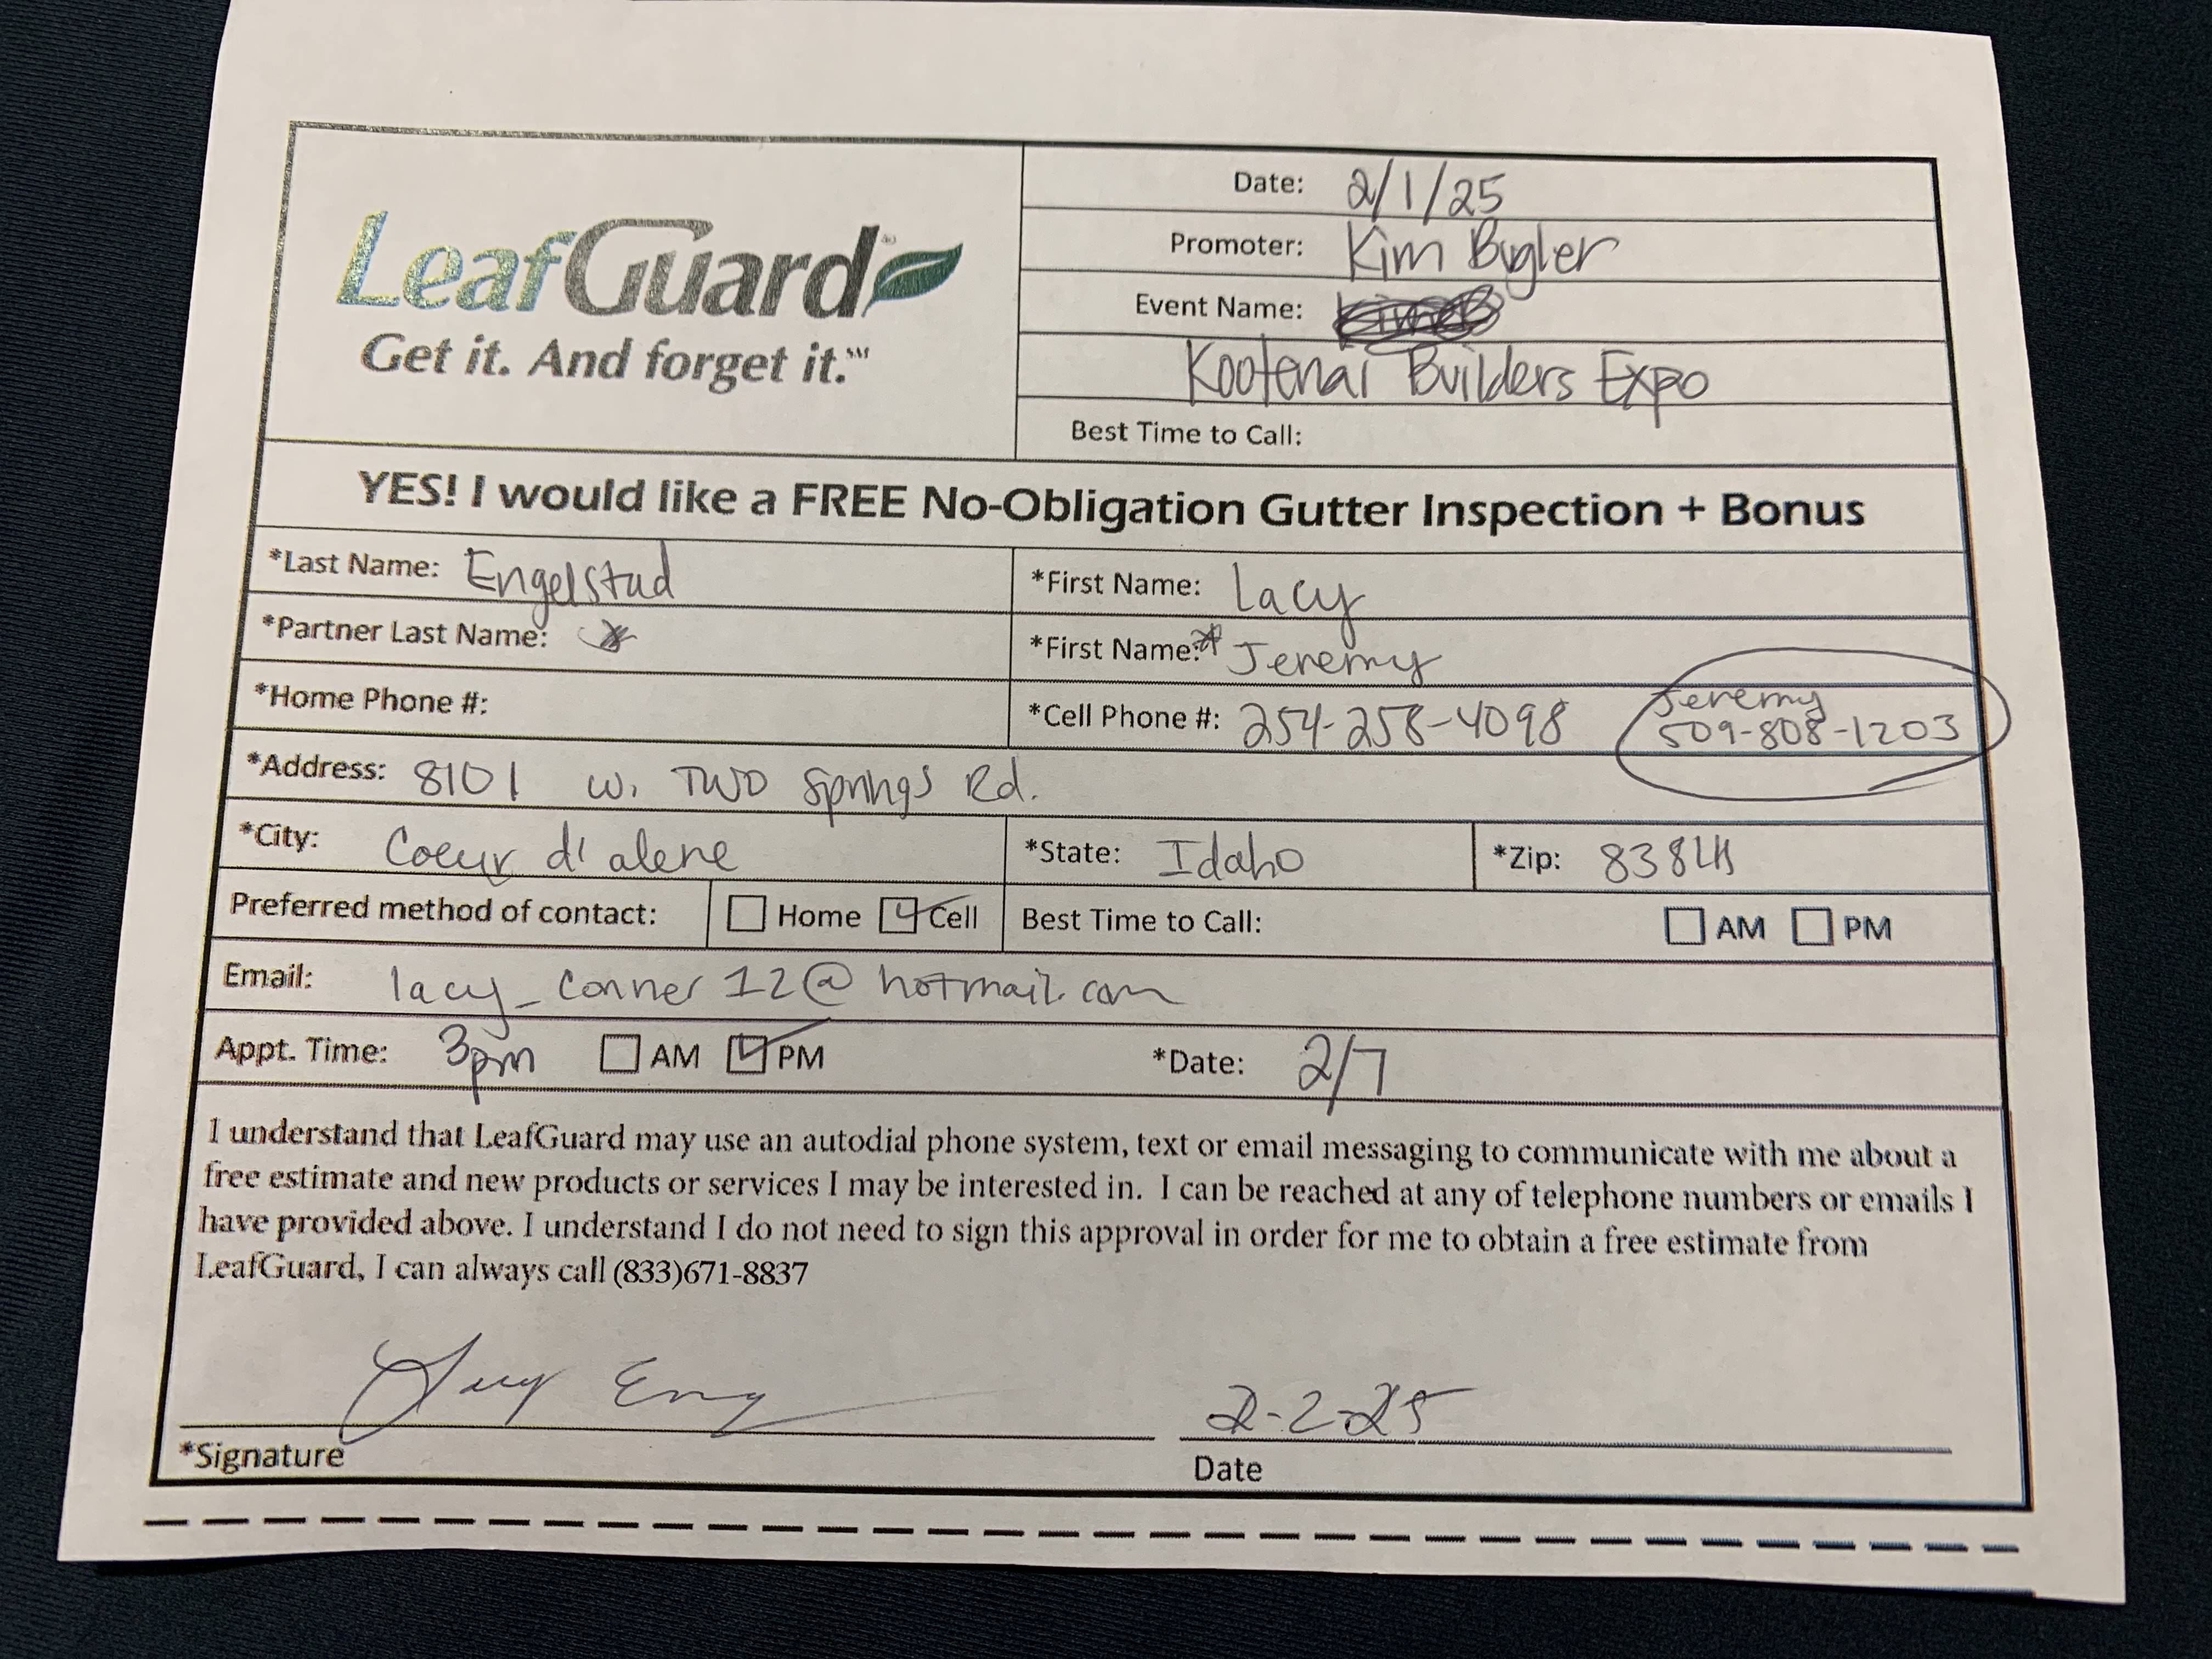 LeafGuard®
Get it. And forget it.℠
Date: 2/1/25
Promoter: Kim Bugler
Event Name:
Kootenai Builders Expo
Best Time to Call:
YES! I would like a FREE No-Obligation Gutter Inspection + Bonus
*Last Name: Engelstad *First Name: Lacy
*Partner Last Name: *First Name: Jeremy
*Home Phone #: *Cell Phone #: 254-258-4098 Jeremy 509-808-1203
*Address: 8101 W. Two Springs Rd.
*City: Coeur d'alene *State: Idaho *Zip: 83814
Preferred method of contact: Home Cell Best Time to Call: AM PM
Email: lacy_conner12@hotmail.com
Appt. Time: 3pm AM PM *Date: 2/7
I understand that LeafGuard may use an autodial phone system, text or email messaging to communicate with me about a
free estimate and new products or services I may be interested in. I can be reached at any of telephone numbers or emails I
have provided above. I understand I do not need to sign this approval in order for me to obtain a free estimate from
LeafGuard, I can always call (833)671-8837
2-2-25
*Signature Date